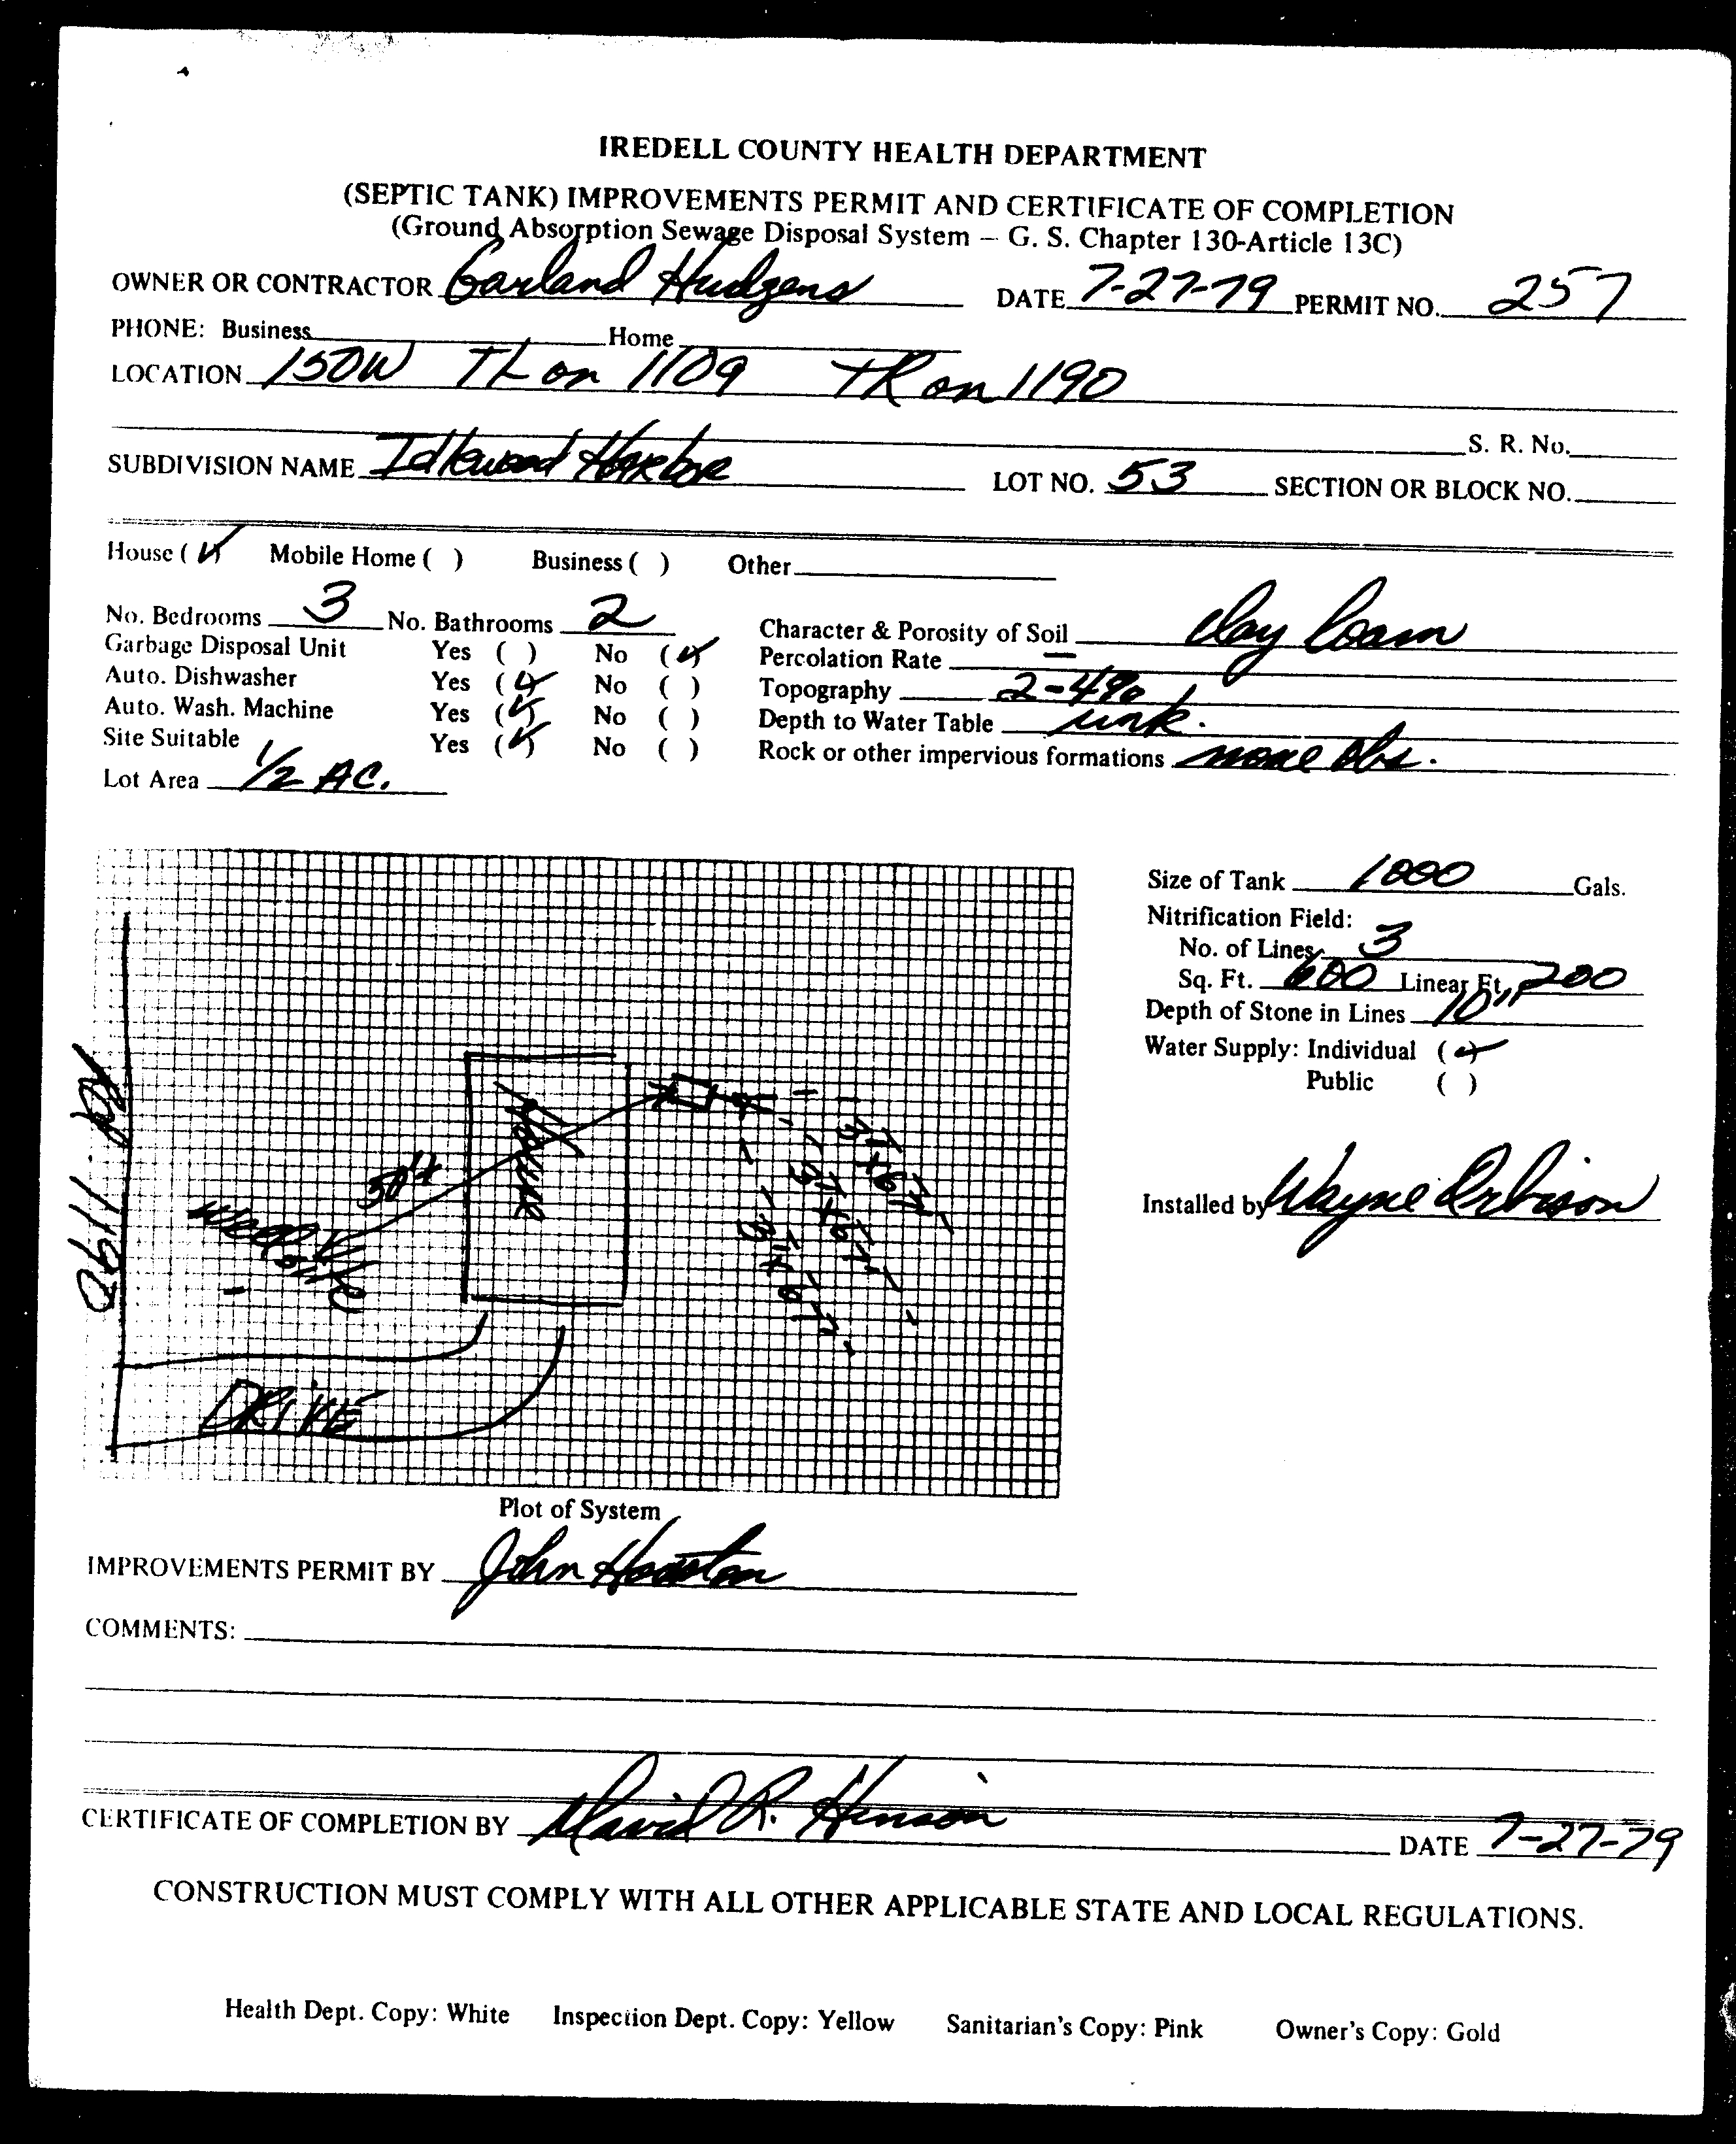 IREDELL COUNTY HEALTH DEPARTMENT
(SEPTIC TANK) IMPROVEMENTS PERMIT AND CERTIFICATE OF COMPLETION
(Ground Absorption Sewage Disposal System – G. S. Chapter 130-Article 13C)
OWNER OR CONTRACTOR Garland Hudgens DATE 7-27-79 PERMIT NO. 257
PHONE: Business Home
LOCATION 150W TL on 1109 TR on 1190
S. R. No.
SUBDIVISION NAME Idlewood Harbor LOT NO. 53 SECTION OR BLOCK NO.
House (✓) Mobile Home ( ) Business ( ) Other
No. Bedrooms 3 No. Bathrooms 2 Character & Porosity of Soil Clay loam
Garbage Disposal Unit Yes ( ) No (✓) Percolation Rate —
Auto. Dishwasher Yes (✓) No ( ) Topography 2-4%
Auto. Wash. Machine Yes (✓) No ( ) Depth to Water Table unk.
Site Suitable Yes (✓) No ( ) Rock or other impervious formations none obs.
Lot Area 1/2 AC.
Size of Tank 1000 Gals.
Nitrification Field:
No. of Lines 3
Sq. Ft. 600 Linear Ft. 200
Depth of Stone in Lines 10"
Water Supply: Individual (✓)
Public ( )
Installed by Wayne Orbison
Rd 1190
50'+
House
3'x67'
3'x67'
3'x67'
DRIVE
Plot of System
IMPROVEMENTS PERMIT BY John Houston
COMMENTS:
CERTIFICATE OF COMPLETION BY David R. Henson DATE 7-27-79
CONSTRUCTION MUST COMPLY WITH ALL OTHER APPLICABLE STATE AND LOCAL REGULATIONS.
Health Dept. Copy: White Inspection Dept. Copy: Yellow Sanitarian's Copy: Pink Owner's Copy: Gold